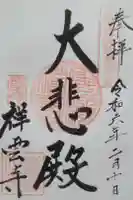 奉拝
令和六年二月十日
大悲殿
祥雲寺